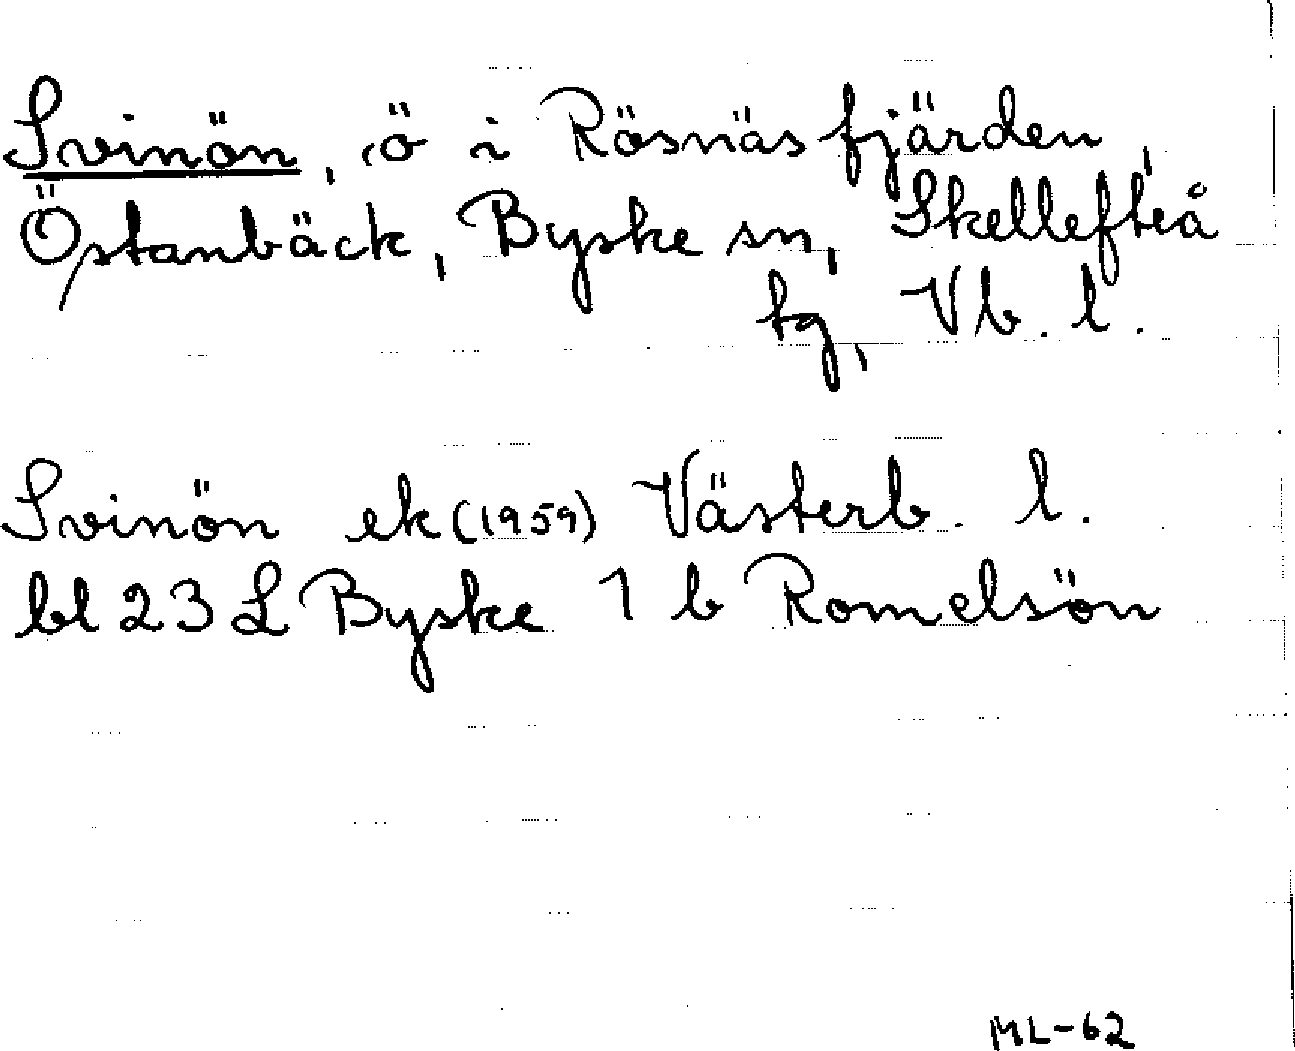 Svinön, ö i Rösnäsfjärden,
Östanbäck, Byske sn, Skellefteå
tg, Vb. l.
Svinön ek (1959) Västerb. l.
bl 23 L Byske 1 b Romelsön
ML-62